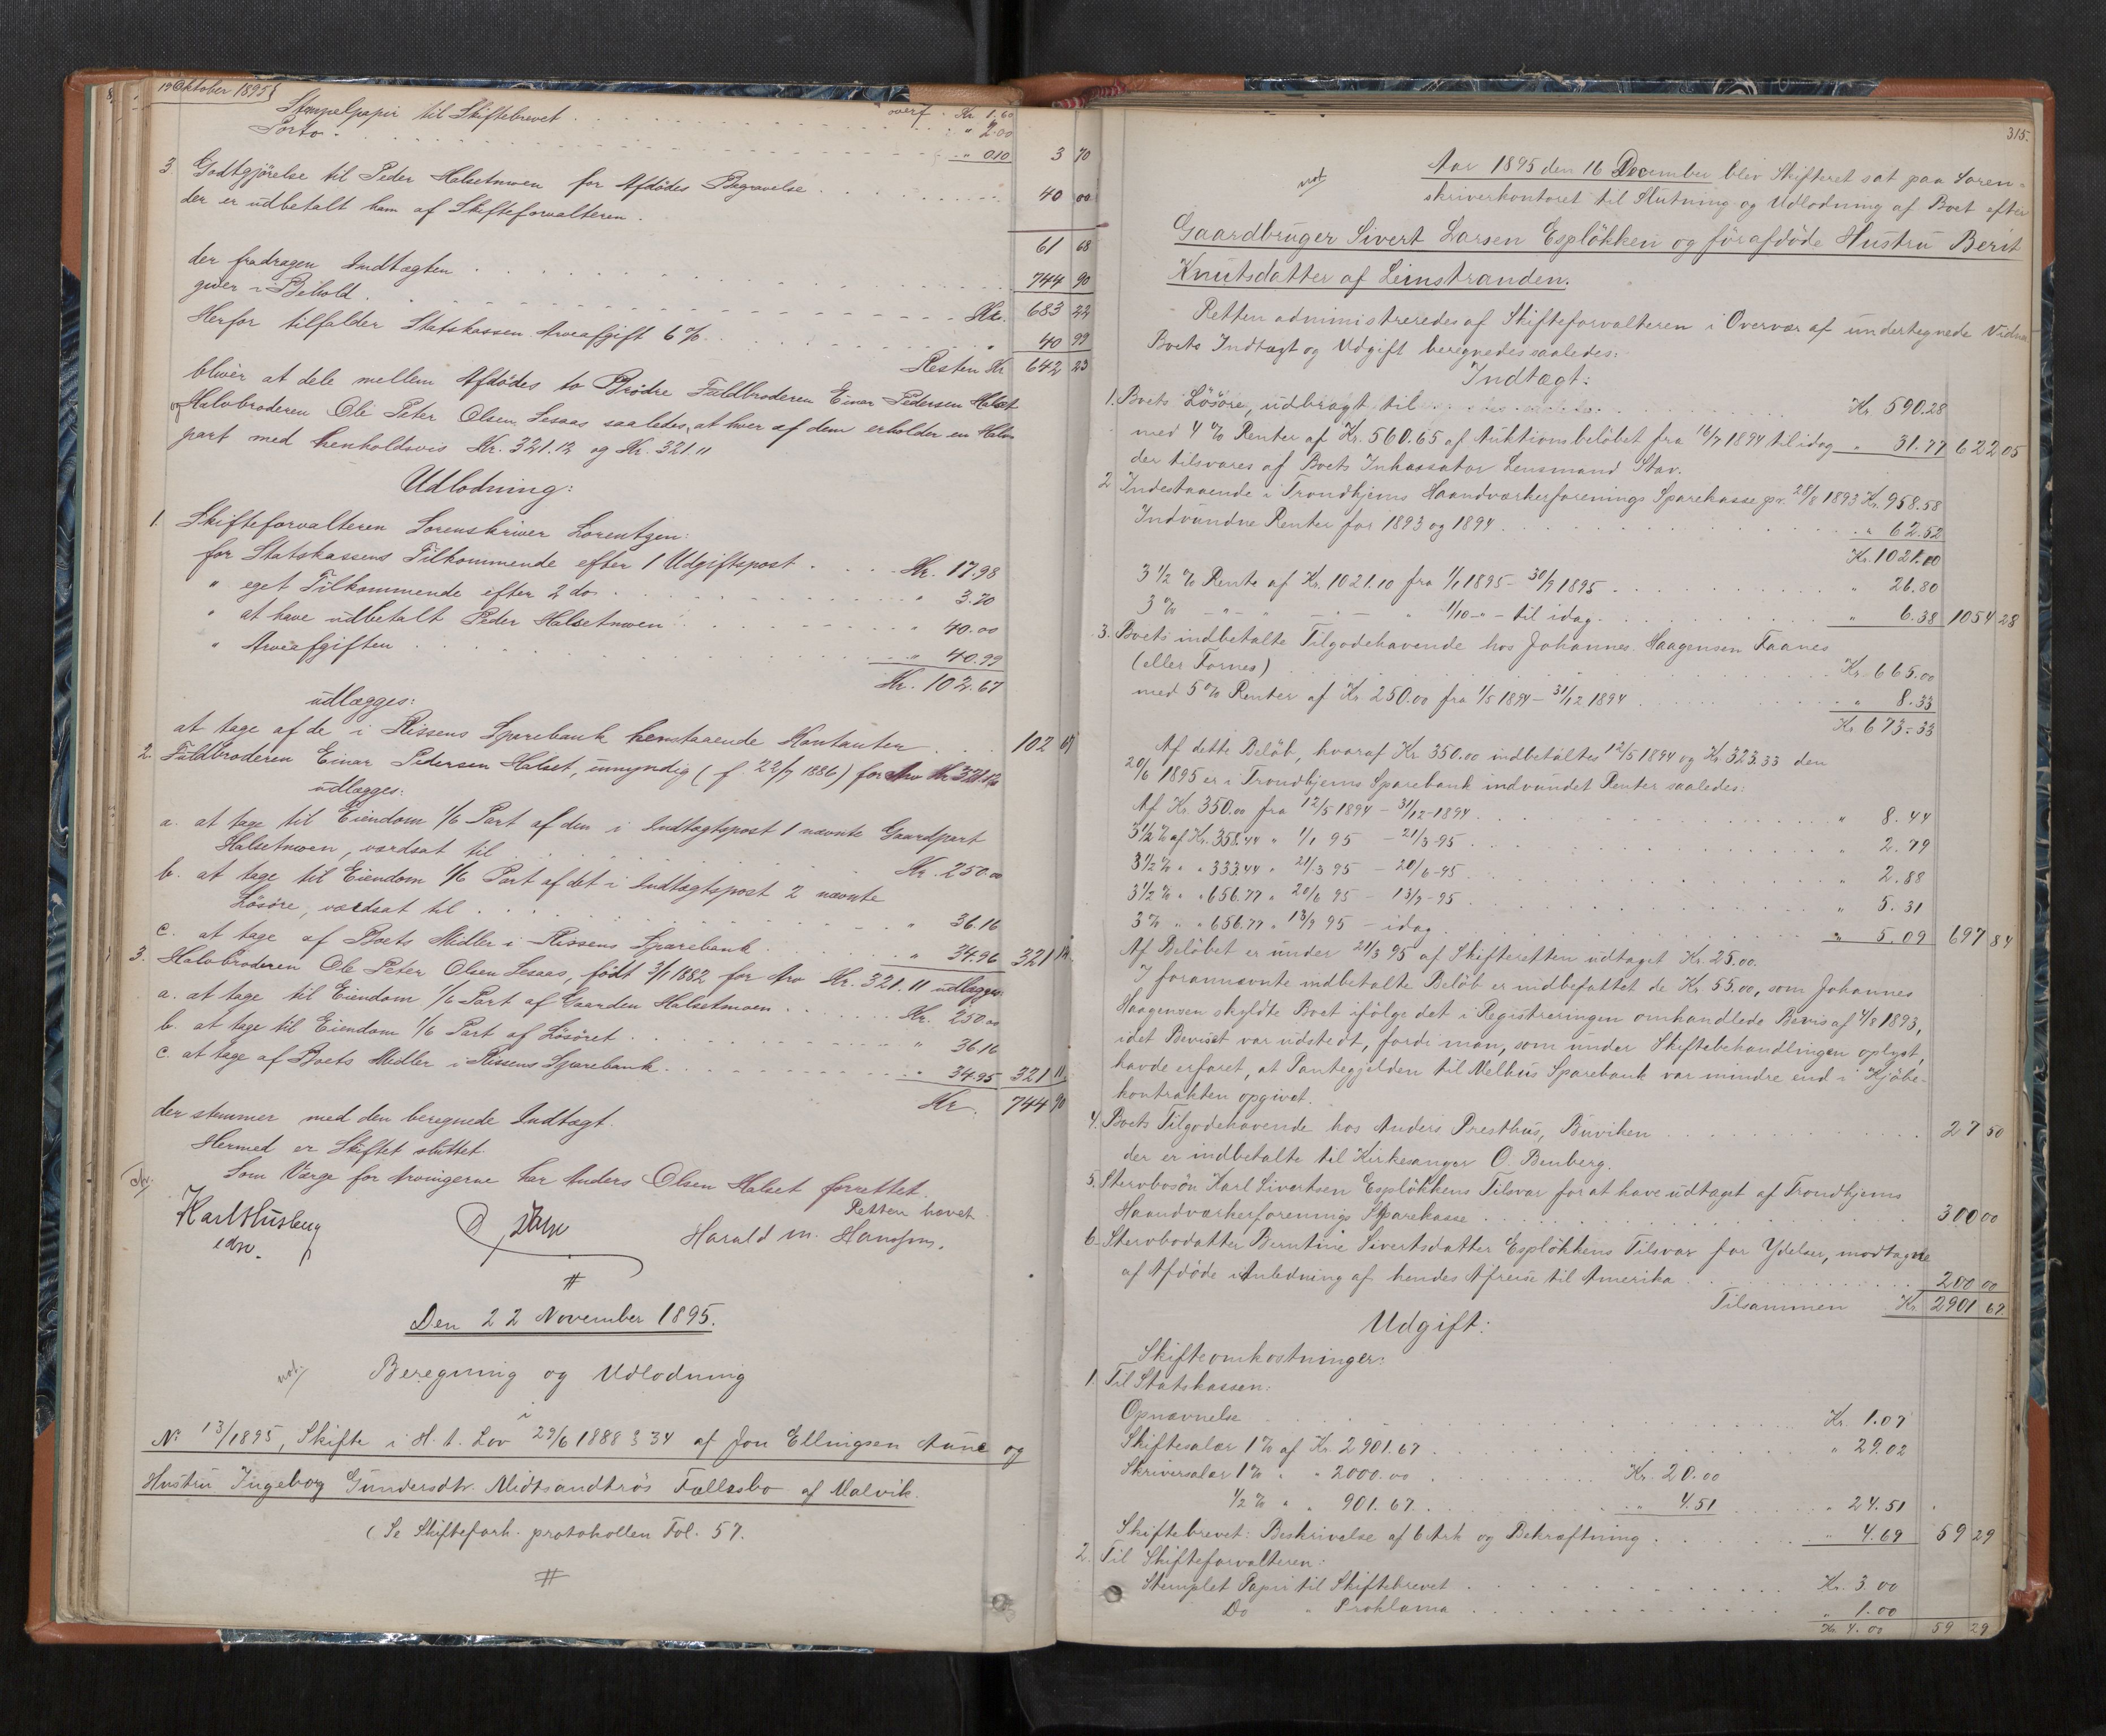 19 Oktober 1895}
overf. Kr. 1.60
Stempelpapir til Skiftebrevet . . . " 2.00
Porto . . . " 0.10 3 70
3. Godtgjörelse til Peder Halsetmoen for Afdödes Begravelse . . . 40 00
der er udbetalt ham af Skifteforvalteren.
61 68
der fradragen Indtægten . . . 744 90
giver i Behold . . . Kr. 683 22
Herfor tilfalder Statskassen Arveafgift 6 % . . . 40 99
Resten Kr 642 23
bliver at dele mellem Afdödes to Brödre Fuldbroderen Einar Pedersen Halset
og Halvbroderen Ole Peter Olsen Lesaas saaledes, at hver af dem erholder en Halv-
part med henholdsvis Kr. 321.12 og Kr. 321.11
Udlodning:
1. Skifteforvalteren Sorenskriver Lorentzen:
for Statskassens Tilkommende efter 1 Udgiftspost . . . Kr. 17.98
" eget Tilkommende efter 2 do . . . " 3.70
" at have udbetalt Peder Halsetmoen . . . " 40.00
" Arveafgiften . . . " 40.99
Kr. 102.67
udlægges:
at tage af de i Rissens Sparebank henstaaende Kontanter . . . 102 67
2. Fuldbroderen Einar Pedersen Halset, umyndig (f. 22/7 1886) for Arv Kr 321.12
udlægges:
a. at tage til Eiendom 1/6 Part af den i Indtægtspost 1 nævnte Gaardpart
Halsetmoen, værdsat til . . . Kr. 250.00
b. at tage til Eiendom 1/6 Part af det i Indtægtspost 2 nævnte
Lösöre, værdsat til . . . " 36.16
c. at tage af Boets Midler i Rissens Sparebank . . . " 34.96 321 12
3. Halvbroderen Ole Peter Olsen Lesaas, födt 3/1 1882 for Arv Kr. 321.11 udlægges
a. at tage til Eiendom 1/6 Part af Gaarden Halsetmoen . . . Kr. 250.00
b. at tage til Eiendom 1/6 Part af Lösöret . . . " 36.16
c. at tage af Boets Midler i Rissens Sparebank . . . " 34.95 321 11
Kr. 744 90
der stemmer med den beregnede Indtægt.
Hermed er Skiftet sluttet.
Som Værge for Arvingerne har Anders Olsen Halset forrettet.
Retten hævet
Karl Husberg
edsv.
Harald M. Hansen.
#
Den 22 November 1895.
not.
Beregning og Udlodning
i
No 13/1895, Skifte i H. t. Lov 29/6 1888 § 34 af Jon Ellingsen Aune og
Hustru Ingeborg Gundersdtr. Midtsandtrös Fællesbo af Malvik.
(Se Skifteforh. protokollen Fol. 57.
#
315.
not
Aar 1895 den 16 December blev Skifteret sat paa Soren-
skriverkontoret til Slutning og Udlodning af Boet efter
Gaardbruger Sivert Larsen Esplökken og förafdöde Hustru Berit
Knutsdatter af Leinstranden.
Retten administreredes af Skifteforvalteren i Overvær af undertegnede Vidner
Boets Indtægt og Udgift beregnedes saaledes:
Indtægt:
1. Boets Lösöre, udbragt til . . . Kr. 590.28
med 4 % Renter af Kr. 560.65 af Auktionsbelöbet fra 16/7 1894 til idag " 31.77 622 05
der tilsvares af Boets Inkassator Lensmand Stav.
2. Indestaaende i Trondhjems Haandværkerforenings Sparekasse pr. 28/8 1893 Kr. 958.58
Indvundne Renter for 1893 og 1894 . . . " 62.52
Kr. 1021.00
3 1/2 % Rente af Kr. 1021.10 fra 1/1 1895 - 30/9 1895 . . . " 26.80
3 % - " - " - " - " 1/10 - " - til idag . . . " 6.38 1054 28
3. Boets indbetalte Tilgodehavende hos Johannes Haagensen Faanes
(eller Fornes) . . . Kr. 665.00
med 5 % Renter af Kr 250.00 fra 1/5 1894 - 31/12 1894 . . . " 8.33
Kr 673.33
Af dette Belöb, hvoraf Kr 350.00 indbetaltes 12/5 1894 og Kr. 323.33 den
20/6 1895 er i Trondhjems Sparebank indvundet Renter saaledes:
Af Kr. 350.00 fra 12/5 1894 - 31/12 1894 . . . " 8.44
3 1/2 % af Kr. 358.44 " 1/1 95 - 21/3 95 . . . " 2.79
3 1/2 % " " 333.44 " 21/3 95 - 20/6 95 . . . " 2.88
3 1/2 % " " 656.77 " 20/6 95 - 13/9 95 . . . " 5.31
3 % " " 656.77 " 13/9 95 - idag . . . " 5.09 697 84
Af Belöbet er under 21/3 95 af Skifteretten udtaget Kr. 25.00.
I forannævnte indbetalte Belöb er indbefattet de Kr. 55.00, som Johannes
Haagensen skyldte Boet ifölge det i Registreringen omhandlede Bevis af 4/8 1893,
idet Beviset var udstedt, fordi man, som under Skiftebehandlingen oplyst,
havde erfaret, at Pantegjelden til Melhus Sparebank var mindre end i Kjöbe-
kontrakten opgivet.
4. Boets Tilgodehavende hos Anders Presthus, Buviken . . . 27 50
der er indbetalte til Kirkesanger O. Benberg.
5. Stervbosön Karl Sivertsen Esplökkens Tilsvar for at have udtaget af Trondhjems
Haandværkerforenings Sparekasse . . . 300 00
6. Stervbodatter Berntine Sivertsdatter Esplökkens Tilsvar for Ydelser, modtagne
af Afdöde i Anledning af hendes Afreise til Amerika . . . 200 00
Tilsammen Kr. 2901 67
Udgift:
Skifteomkostninger:
1. Til Statskassen:
Opnævnelse . . . Kr. 1.07
Skiftesalær 1 % af Kr. 2901.67 . . . " 29.02
Skriversalær 1 % " " 2000.00 . . . Kr. 20.00
1/2 % " " 901.67 . . . " 4.51 . . . " 24.51
Skiftebrevet: Beskrivelse af 6 Ark og Bekræftning . . . " 4.69 59 29
2. Til Skifteforvalteren:
Stemplet Papir til Skiftebrevet . . . Kr. 3.00
Do " Proklama . . . " 1.00
Kr. 4.00 59 29